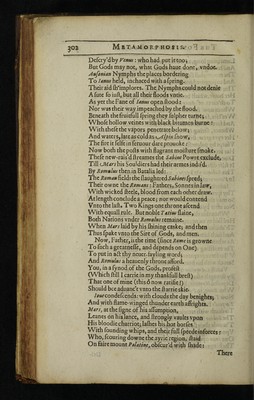 302 METAMORPHOSIS.
Descry'd by Venus: who had put it too;
But Gods may not, what Gods haue done, vndoe.
Ausonian Nymphs the places bordering
To Ianus held, inchaced with a spring.
Their aid sh'implores. The Nymphs could not denie
A sute so iust, but all their floods vntie.
As yet the Fane of Ianus open stood:
Nor was their way impeached by the flood.
Beneath the fruitfull spring they sulphur turne;
Whose hollow veines with black bitumen burne:
With these the vapors penetrate below;
And waters, late as cold as Alpin snow,
The fire it selfe in feruour dare prouoke:
Now both the posts with flagrant moisture smoke.
These new-rais'd streames the Sabine Powre exclude,
Till Mars his souldiers had their armes indu'd.
By Romulus then in Batalia led:
The Roman fields the slaughtred Sabines spred;
Their owne the Romans: Fathers, Sonnes in law,
With wicked steele, blood from each other draw.
At length conclude a peace; nor would contend
Vnto the last. Two Kings one throne ascend
With equall rule. But noble Tatius slaine,
Both Nations vnder Romulus remaine.
When Mars laid by his shining caske; and then
Thus spake vnto the Sire of Gods, and men.
Now, Father, is the time (since Rome is growne
To such a greatnesse, and depends on One)
To put in act thy neuer-fayling word;
And Romulus a heauenly throne afford.
You, in a synod of the Gods, profest
(Which still I carrie in my thankfull brest)
That one of mine (this ô now ratifie!)
Should be aduanc't vnto the starrie skie.
Ioue condescends: with clouds the day benights;
And with flame-winged thunder earth affrights.
Mars, at the signe of his assumption,
Leanes on his lance, and strongly vaults vpon
His bloodie charriot; lashes his hot horses
With sounding whips, and their full speede inforces:
Who, scouring downe the ayrie region, staid
On faire mount Palatine, obscur'd with shade:
There